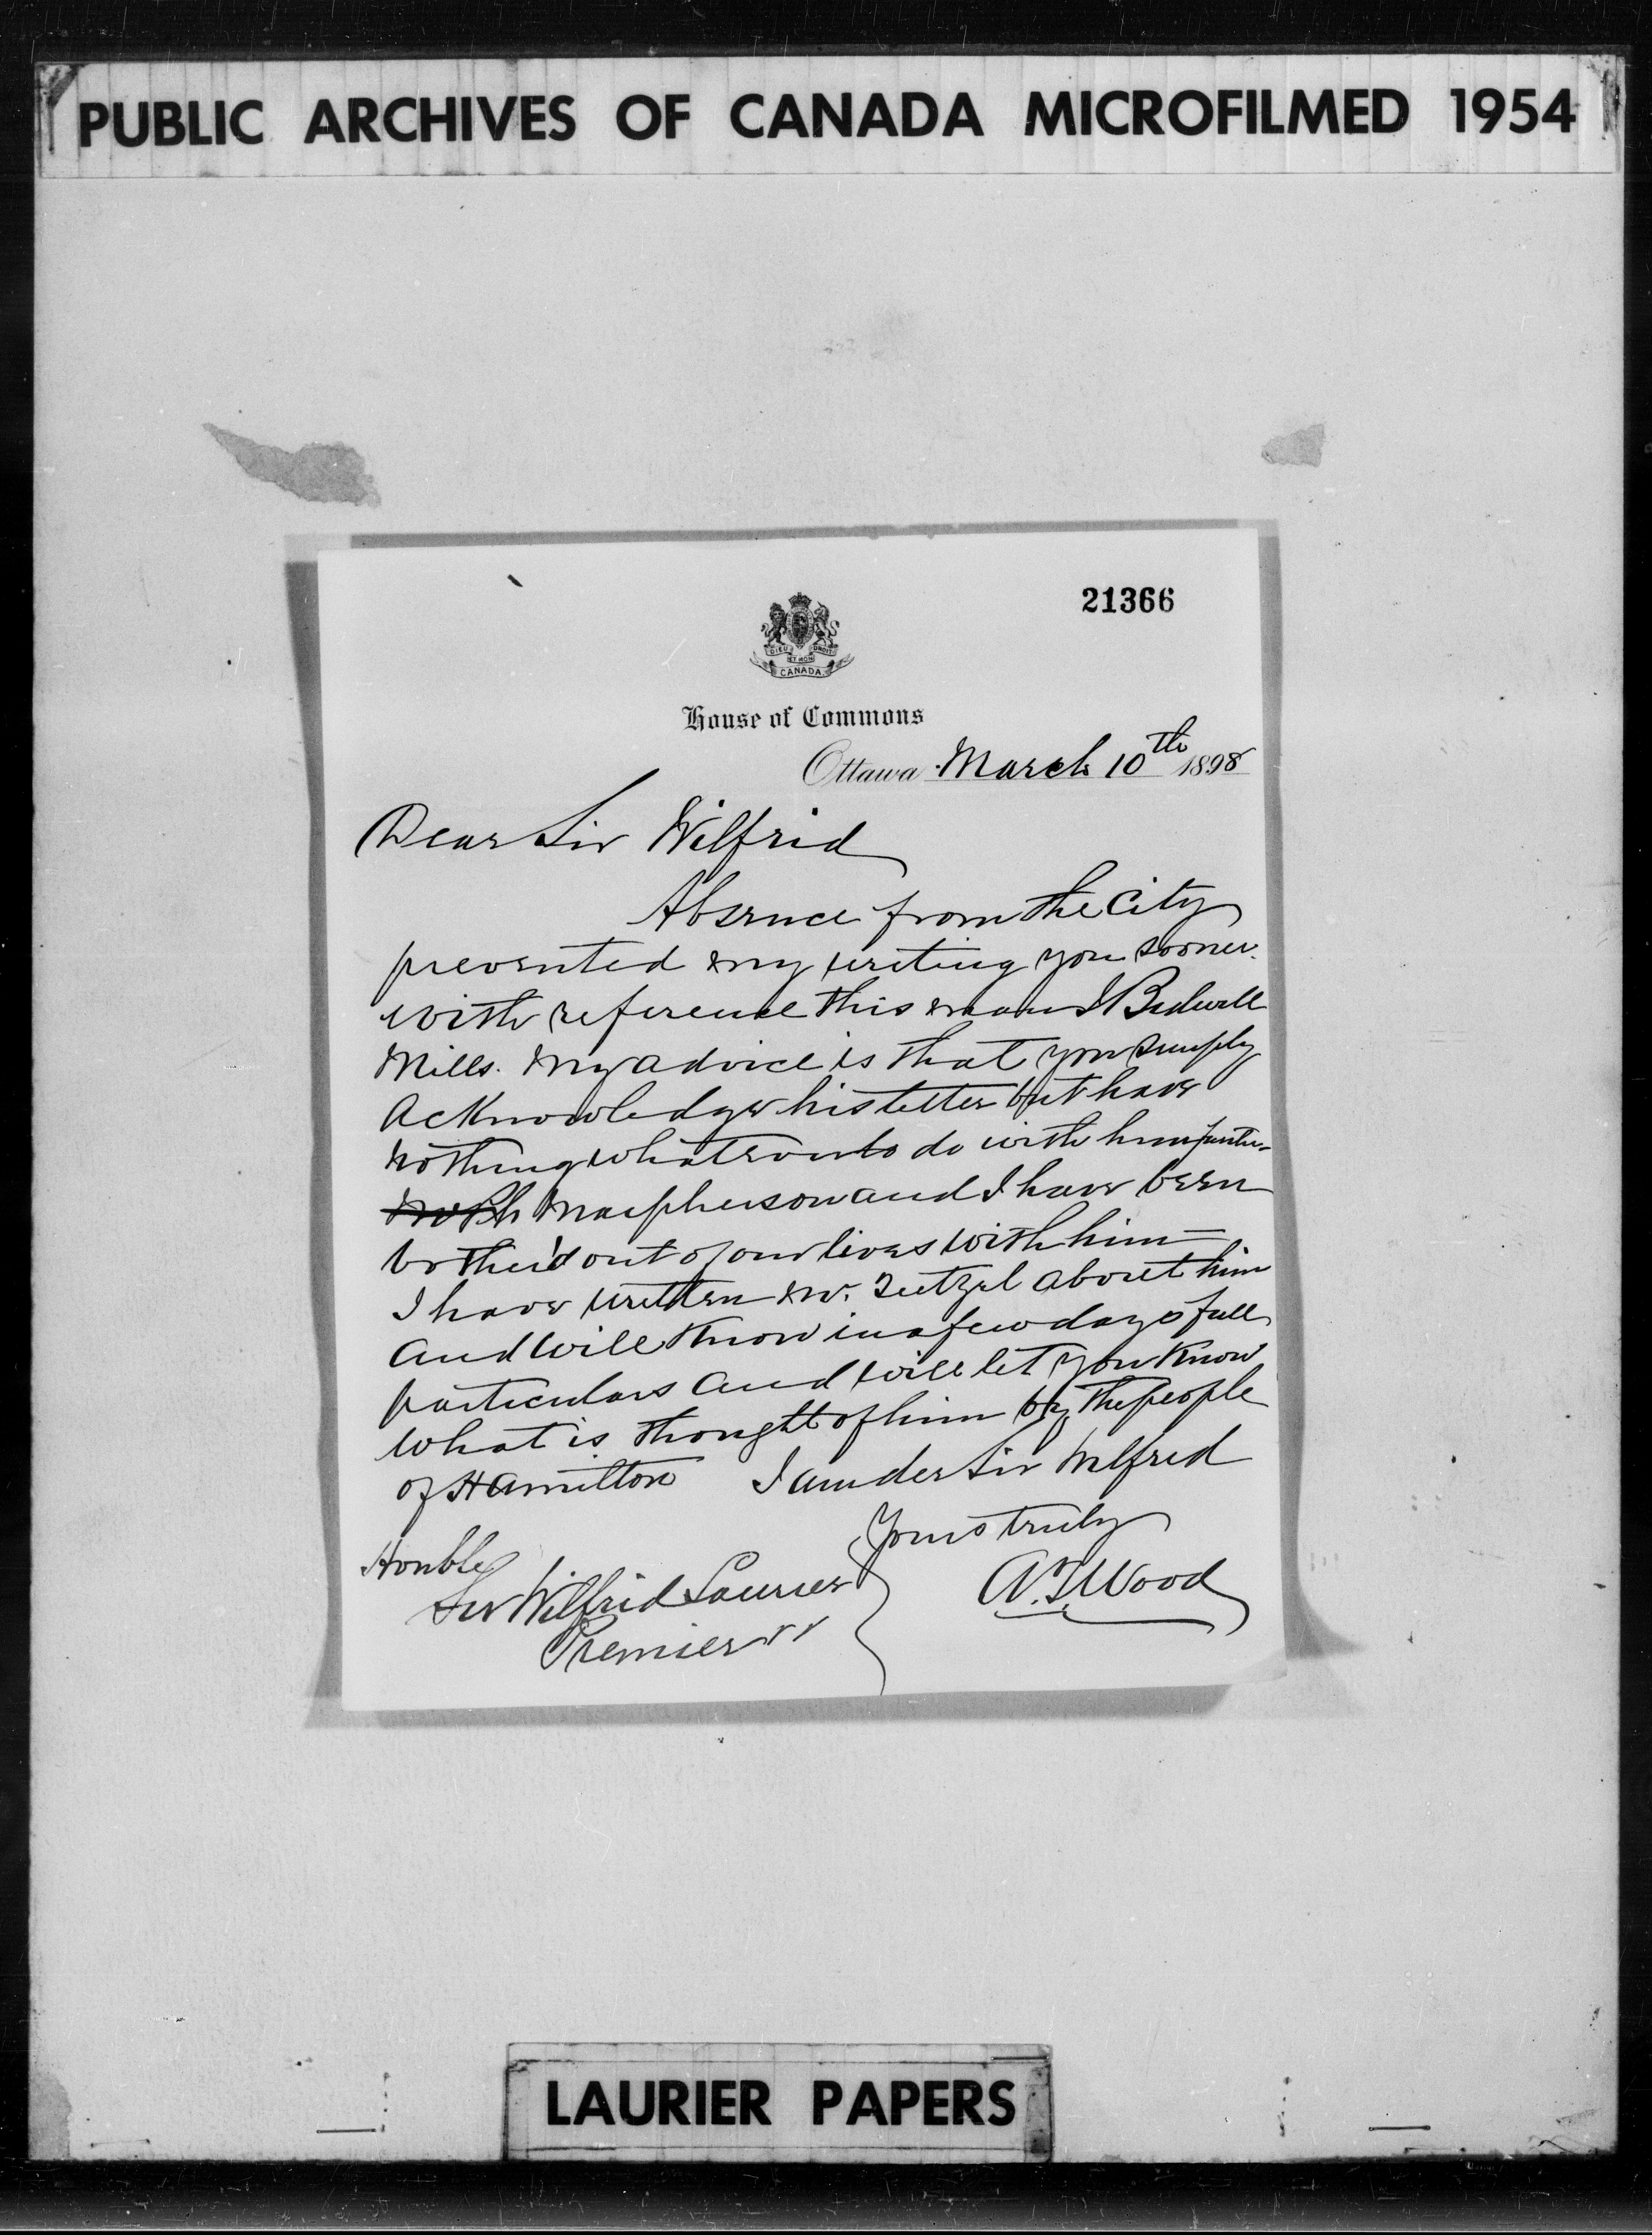 PUBLIC ARCHIVES OF CANADA MICROFILMED 1954
21366
DIEU ET MON DROIT
CANADA
House of Commons
Ottawa March 10th 1898
Dear Sir Wilfrid
Absence from the City
prevented my writing you sooner.
with reference this man I Bidwell
Mills. My advice is that you simply
acknowledge his letter but have
nothing whatever to do with him further
Macpherson and I have been
bother'd out of our lives with him —
I have written Mr. Teetzel about him
and will know in a few days full
particulars and will let you know
what is thought of him by the people
of Hamilton I am der Sir Wilfred
Yours truly
A.T. Wood
Honble
Sir Wilfrid Laurier
Premier
LAURIER PAPERS